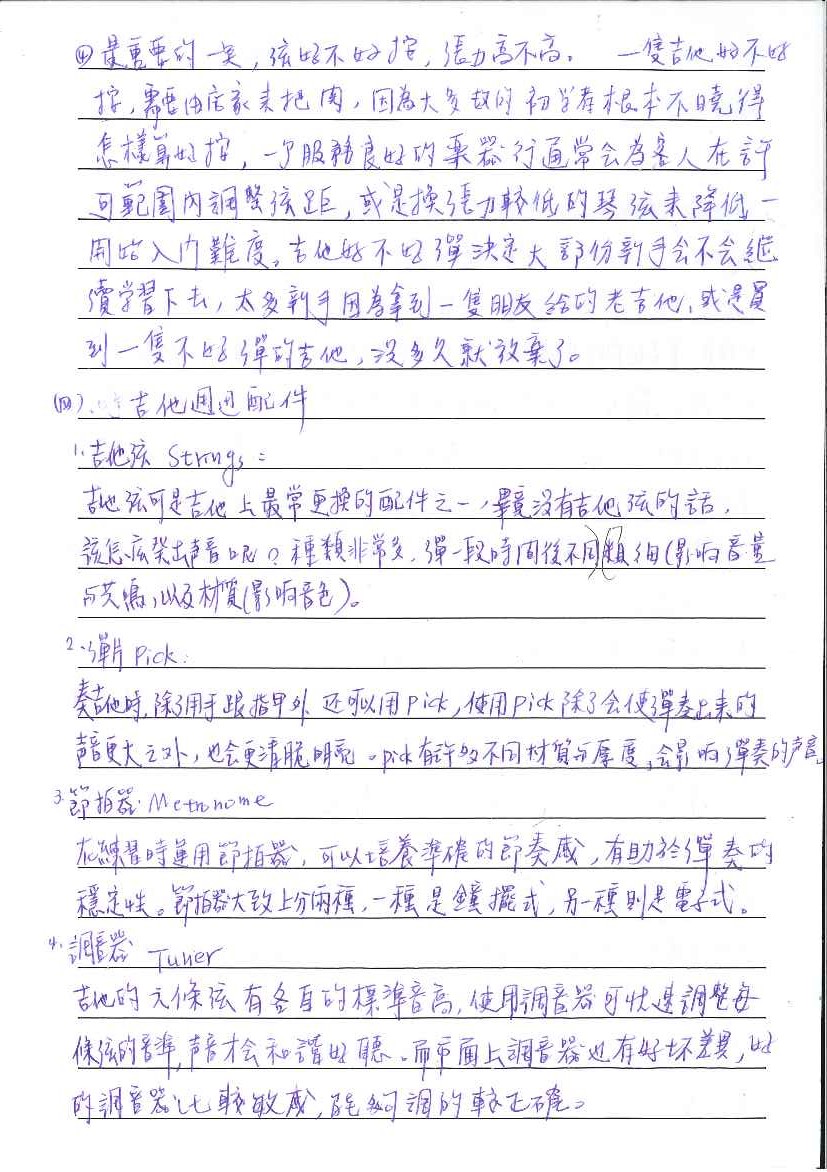 ④ 最重要的一矣,弦好不好按,張力高不高。 一隻吉他好不好
按,需要由店家來把関,因為大多数的初学者根本不曉得
怎樣算好按,一多服務良好的樂器行通常会為客人在許
可範圍內調整弦距,或是換張力較低的琴弦來降低一
開始入门難度。吉他好不好彈決定大部份新手会不会繼
續學習下去,太多新手因為拿到一隻朋友給的老吉他,或是買
到一隻不好彈的吉他,没多久就放棄了。
(四)、吉他週边配件
1.吉他弦 Strings:
吉他弦可是吉他上最常更換的配件之一,畢竟沒有吉他弦的話,
該怎庅癸出声音呢?種類非常多,彈一段時間後不同粗細(影响音量
与共鳴),以及材質(影响音色)。
2.彈片 Pick:
奏吉他時,除了用手跟指甲外 还可以用 Pick,使用 Pick 除了会使彈奏出來的
声音更大之外,也会更清脆明亮。pick有許多不同材質与厚度,会影响彈奏的声音。
3.節拍器 Metronome
在練習時運用節拍器,可以培養準確的節奏感,有助於彈奏的
穩定性。節拍器大致上分兩種,一種是鐘擺式,另一種則是電子式。
4.調音器 Tuner
吉他的六條弦有各自的標準音高,使用調音器可快速調整每
條弦的音準,声音才会和諧好聽。而市面上調音器也有好坏差異,好
的調音器比較敏感,能夠調的較正確。